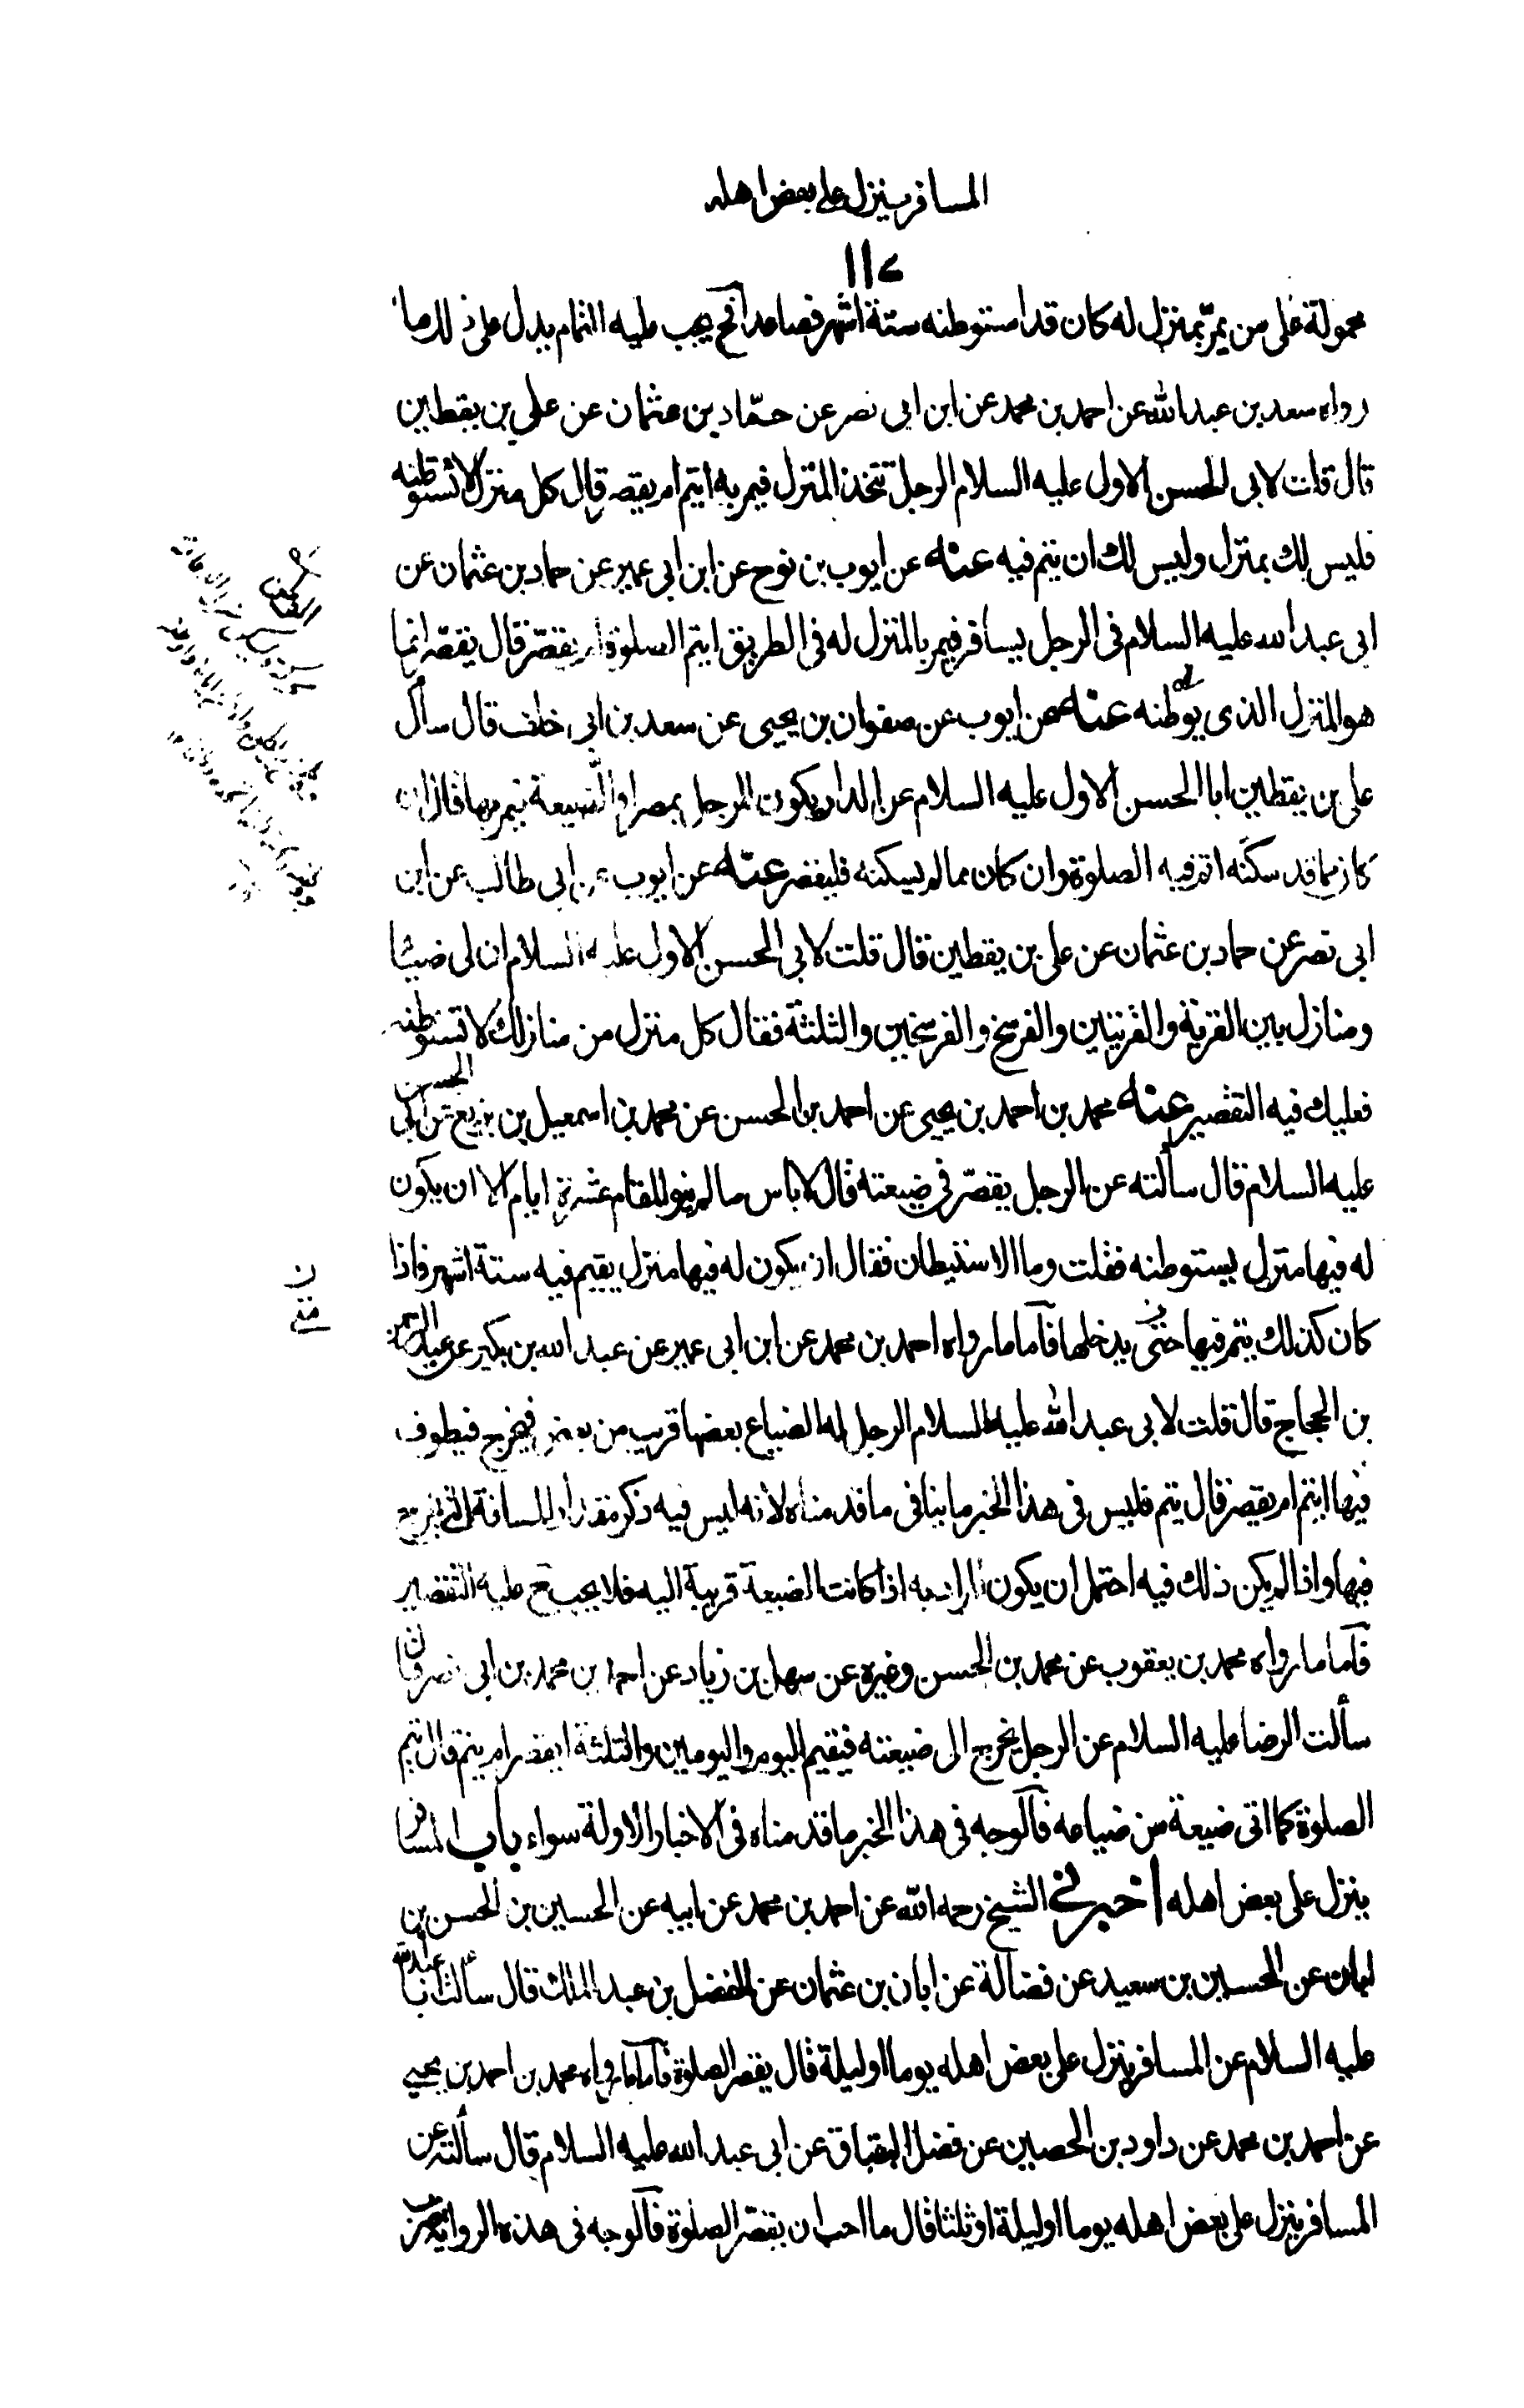 المسافر ينزل على بعض اهله
١١٧
محمولة على من يمرّ بمنزل له كان قد استوطنه ستة اشهر فصاعدا فح يجب عليه التمام يدل على ذلك ما
رواه سعد بن عبد الله عن احمد بن محمد عن ابن ابى نصر عن حمّاد بن عثمان عن على بن يقطين
قال قلت لابى الحسن الاول عليه السلام الرجل تتخذ المنزل فيمر به ايتم ام يقصر قال كل منزل لا تستوطنه
فليس لك بمنزل وليس لك ان تتم فيه عنه عن ايوب بن نوح عن ابن ابى عمير عن حماد بن عثمان عن
ابى عبد الله عليه السلام فى الرجل يسافر فيمر بالمنزل له فى الطريق ايتم الصلوة ام يقصّر قال يقصّر انما
هو المنزل الذى يوطنه عنه عن ايوب عن صفوان بن يحيى عن سعد بن ابى خلف قال سأل
على بن يقطين ابا الحسن الاول عليه السلام عن الدار يكون للرجل بمصر او الضيعة فيمر بها قال ان
كان مما قد سكنه اتم فيه الصلوة وان كان مما لم يسكنه فليقصر عنه عن ايوب عن ابى طالب عن ابن
ابى نصر عن حماد بن عثمان عن على بن يقطين قال قلت لابى الحسن الاول عليه السلام ان لى ضياعا
ومنازل بين القرية والقريتين والفرسخ والفرسخين والثلثة فقال كل منزل من منازلك لا تستوطنه
فعليك فيه التقصير عنه محمد بن احمد بن يحيى عن احمد بن الحسن عن محمد بن اسمعيل بن بزيع عن ابى الحسن
عليه السلام قال سألته عن الرجل يقصّر فى ضيعته قال لا باس ما لم ينو المقام عشرة ايام الا ان يكون
له فيها منزل يستوطنه فقلت وما الاستيطان فقال ان يكون له فيها منزل يقيم فيه ستة اشهر فاذا
كان كذلك يتم فيها حتى يدخلها فآما ما رواه احمد بن محمد عن ابن ابى عمير عن عبد الله بن بكير عن عبد الرحمن
بن الحجاج قال قلت لابى عبد الله عليه السلام الرجل له الضياع بعضها قريب من بعض فيخرج فيطوف
فيها ايتم ام يقصر قال يتم فليس فى هذا الخبر ما ينافى ما قدمناه لانه ليس فيه ذكر مقدار المسافة التى يخرج
فيها واذا لم يكن ذلك فيه احتمل ان يكون اراد به اذا كانت الضيعة قريبة اليه فلا يجب ح عليه التقصير
فآما ما رواه محمد بن يعقوب عن محمد بن الحسن وغيره عن سهل بن زياد عن احمد بن محمد بن ابى نصر قال
سألت الرضا عليه السلام عن الرجل يخرج الى ضيعته فيقيم اليوم واليومين والثلثة ايقصر ام يتم قال يتم
الصلوة كلما اتى ضيعة من ضياعه فآلوجه فى هذا الخبر ما قدمناه فى الاخبار الاولة سواء باب المسافر
ينزل على بعض اهله اخبرنى الشيخ رحمه الله عن احمد بن محمد عن ابيه عن الحسين بن الحسن بن
ابان عن الحسين بن سعيد عن فضالة عن ابان بن عثمان عن الفضل بن عبد الملك قال سألت ابا عبد الله
عليه السلام عن المسافر ينزل على بعض اهله يوما او ليلة قال يقصر الصلوة فآما ما رواه محمد بن احمد بن يحيى
عن احمد بن محمد عن داود بن الحصين عن فضل البقباق عن ابى عبد الله عليه السلام قال سألته عن
المسافر ينزل على بعض اهله يوما او ليلة او ثلثا قال ما احب ان يقصّر الصلوة فآلوجه فى هذه الرواية ضرب